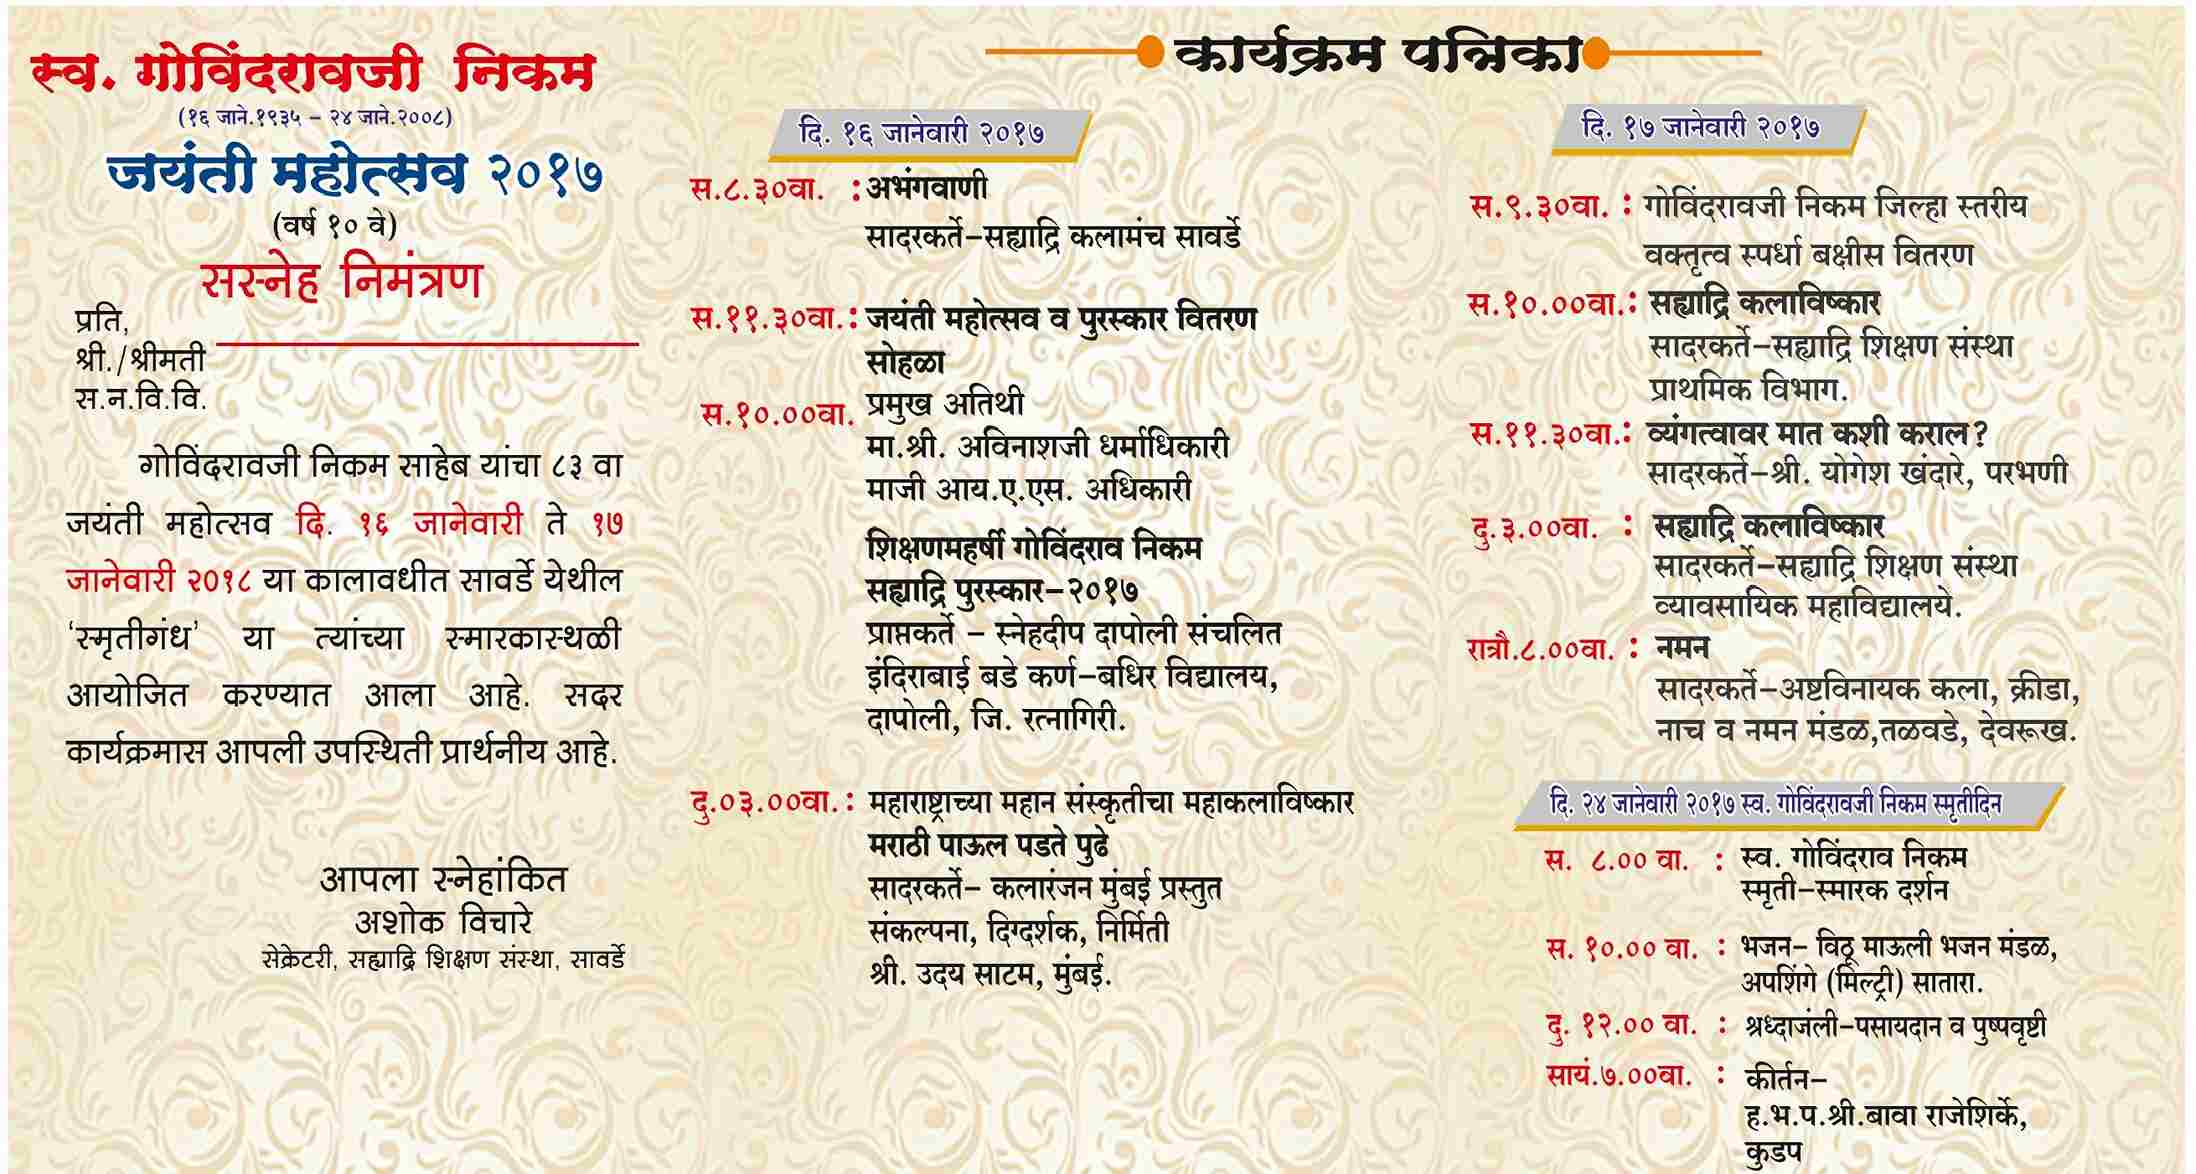 स्व. गोविंदरावजी निकम
(१६ जाने.१९३५ – २४ जाने.२००८)
जयंती महोत्सव २०१७
(वर्ष १० वे)
सस्नेह निमंत्रण
प्रति,
श्री./श्रीमती
स.न.वि.वि.
गोविंदरावजी निकम साहेब यांचा ८३ वा
जयंती महोत्सव दि. १६ जानेवारी ते १७
जानेवारी २०१८ या कालावधीत सावर्डे येथील
‘स्मृतीगंध’ या त्यांच्या स्मारकास्थळी
आयोजित करण्यात आला आहे. सदर
कार्यक्रमास आपली उपस्थिती प्रार्थनीय आहे.
आपला स्नेहांकित
अशोक विचारे
सेक्रेटरी, सह्याद्रि शिक्षण संस्था, सावर्डे
कार्यक्रम पत्रिका
दि. १६ जानेवारी २०१७
स.८.३०वा. : अभंगवाणी
सादरकर्ते–सह्याद्रि कलामंच सावर्डे
स.११.३०वा. : जयंती महोत्सव व पुरस्कार वितरण
सोहळा
स.१०.००वा. प्रमुख अतिथी
मा.श्री. अविनाशजी धर्माधिकारी
माजी आय.ए.एस. अधिकारी
शिक्षणमहर्षी गोविंदराव निकम
सह्याद्रि पुरस्कार–२०१७
प्राप्तकर्ते – स्नेहदीप दापोली संचलित
इंदिराबाई बडे कर्ण–बधिर विद्यालय,
दापोली, जि. रत्नागिरी.
दु.०३.००वा. : महाराष्ट्राच्या महान संस्कृतीचा महाकलाविष्कार
मराठी पाऊल पडते पुढे
सादरकर्ते– कलारंजन मुंबई प्रस्तुत
संकल्पना, दिग्दर्शक, निर्मिती
श्री. उदय साटम, मुंबई.
दि. १७ जानेवारी २०१७
स.९.३०वा. : गोविंदरावजी निकम जिल्हा स्तरीय
वक्तृत्व स्पर्धा बक्षीस वितरण
स.१०.००वा. : सह्याद्रि कलाविष्कार
सादरकर्ते–सह्याद्रि शिक्षण संस्था
प्राथमिक विभाग.
स.११.३०वा. : व्यंगत्वावर मात कशी कराल?
सादरकर्ते–श्री. योगेश खंदारे, परभणी
दु.३.००वा. : सह्याद्रि कलाविष्कार
सादरकर्ते–सह्याद्रि शिक्षण संस्था
व्यावसायिक महाविद्यालये.
रात्रौ.८.००वा. : नमन
सादरकर्ते–अष्टविनायक कला, क्रीडा,
नाच व नमन मंडळ,तळवडे, देवरूख.
दि. २४ जानेवारी २०१७ स्व. गोविंदरावजी निकम स्मृतीदिन
स. ८.०० वा. : स्व. गोविंदराव निकम
स्मृती–स्मारक दर्शन
स. १०.०० वा. : भजन– विठू माऊली भजन मंडळ,
अपशिंगे (मिल्ट्री) सातारा.
दु. १२.०० वा. : श्रध्दाजंली–पसायदान व पुष्पवृष्टी
सायं.७.००वा. : कीर्तन–
ह.भ.प.श्री.बावा राजेशिर्के,
कुडप